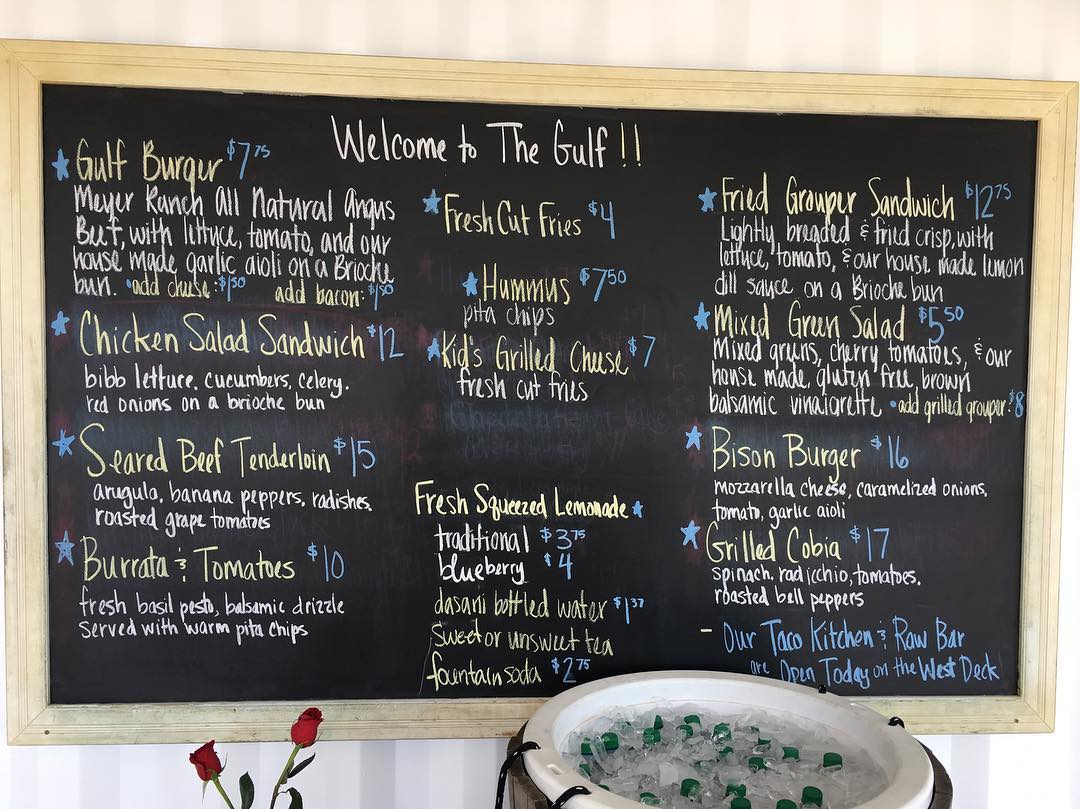 Welcome to The Gulf !!
Gulf Burger $7 75
Meyer Ranch All Natural Angus
Beef, with lettuce, tomato, and our
house made garlic aioli on a Brioche
bun. • add cheese: $1 50 add bacon: $1 50
Chicken Salad Sandwich $12
bibb lettuce, cucumbers, celery,
red onions on a brioche bun
Seared Beef Tenderloin $15
arugula, banana peppers, radishes,
roasted grape tomatoes
Burrata & Tomatoes $10
fresh basil pesto, balsamic drizzle
Served with warm pita chips
Fresh Cut Fries $4
Hummus $7 50
pita chips
Kid's Grilled Cheese $7
fresh cut fries
Fresh Squeezed Lemonade
traditional $3 75
blueberry $4
dasani bottled water $1 37
Sweet or unsweet tea
fountain soda $2 75
Fried Grouper Sandwich $12 75
Lightly breaded & fried crisp, with
lettuce, tomato, & our house made lemon
dill sauce on a Brioche bun
Mixed Green Salad $5 50
Mixed greens, cherry tomatoes, & our
house made, gluten free, brown
balsamic vinaigrette • add grilled grouper: $8
Bison Burger $16
mozzarella cheese, caramelized onions,
tomato, garlic aioli
Grilled Cobia $17
spinach, radicchio, tomatoes,
roasted bell peppers
- Our Taco Kitchen & Raw Bar
are Open Today on the West Deck